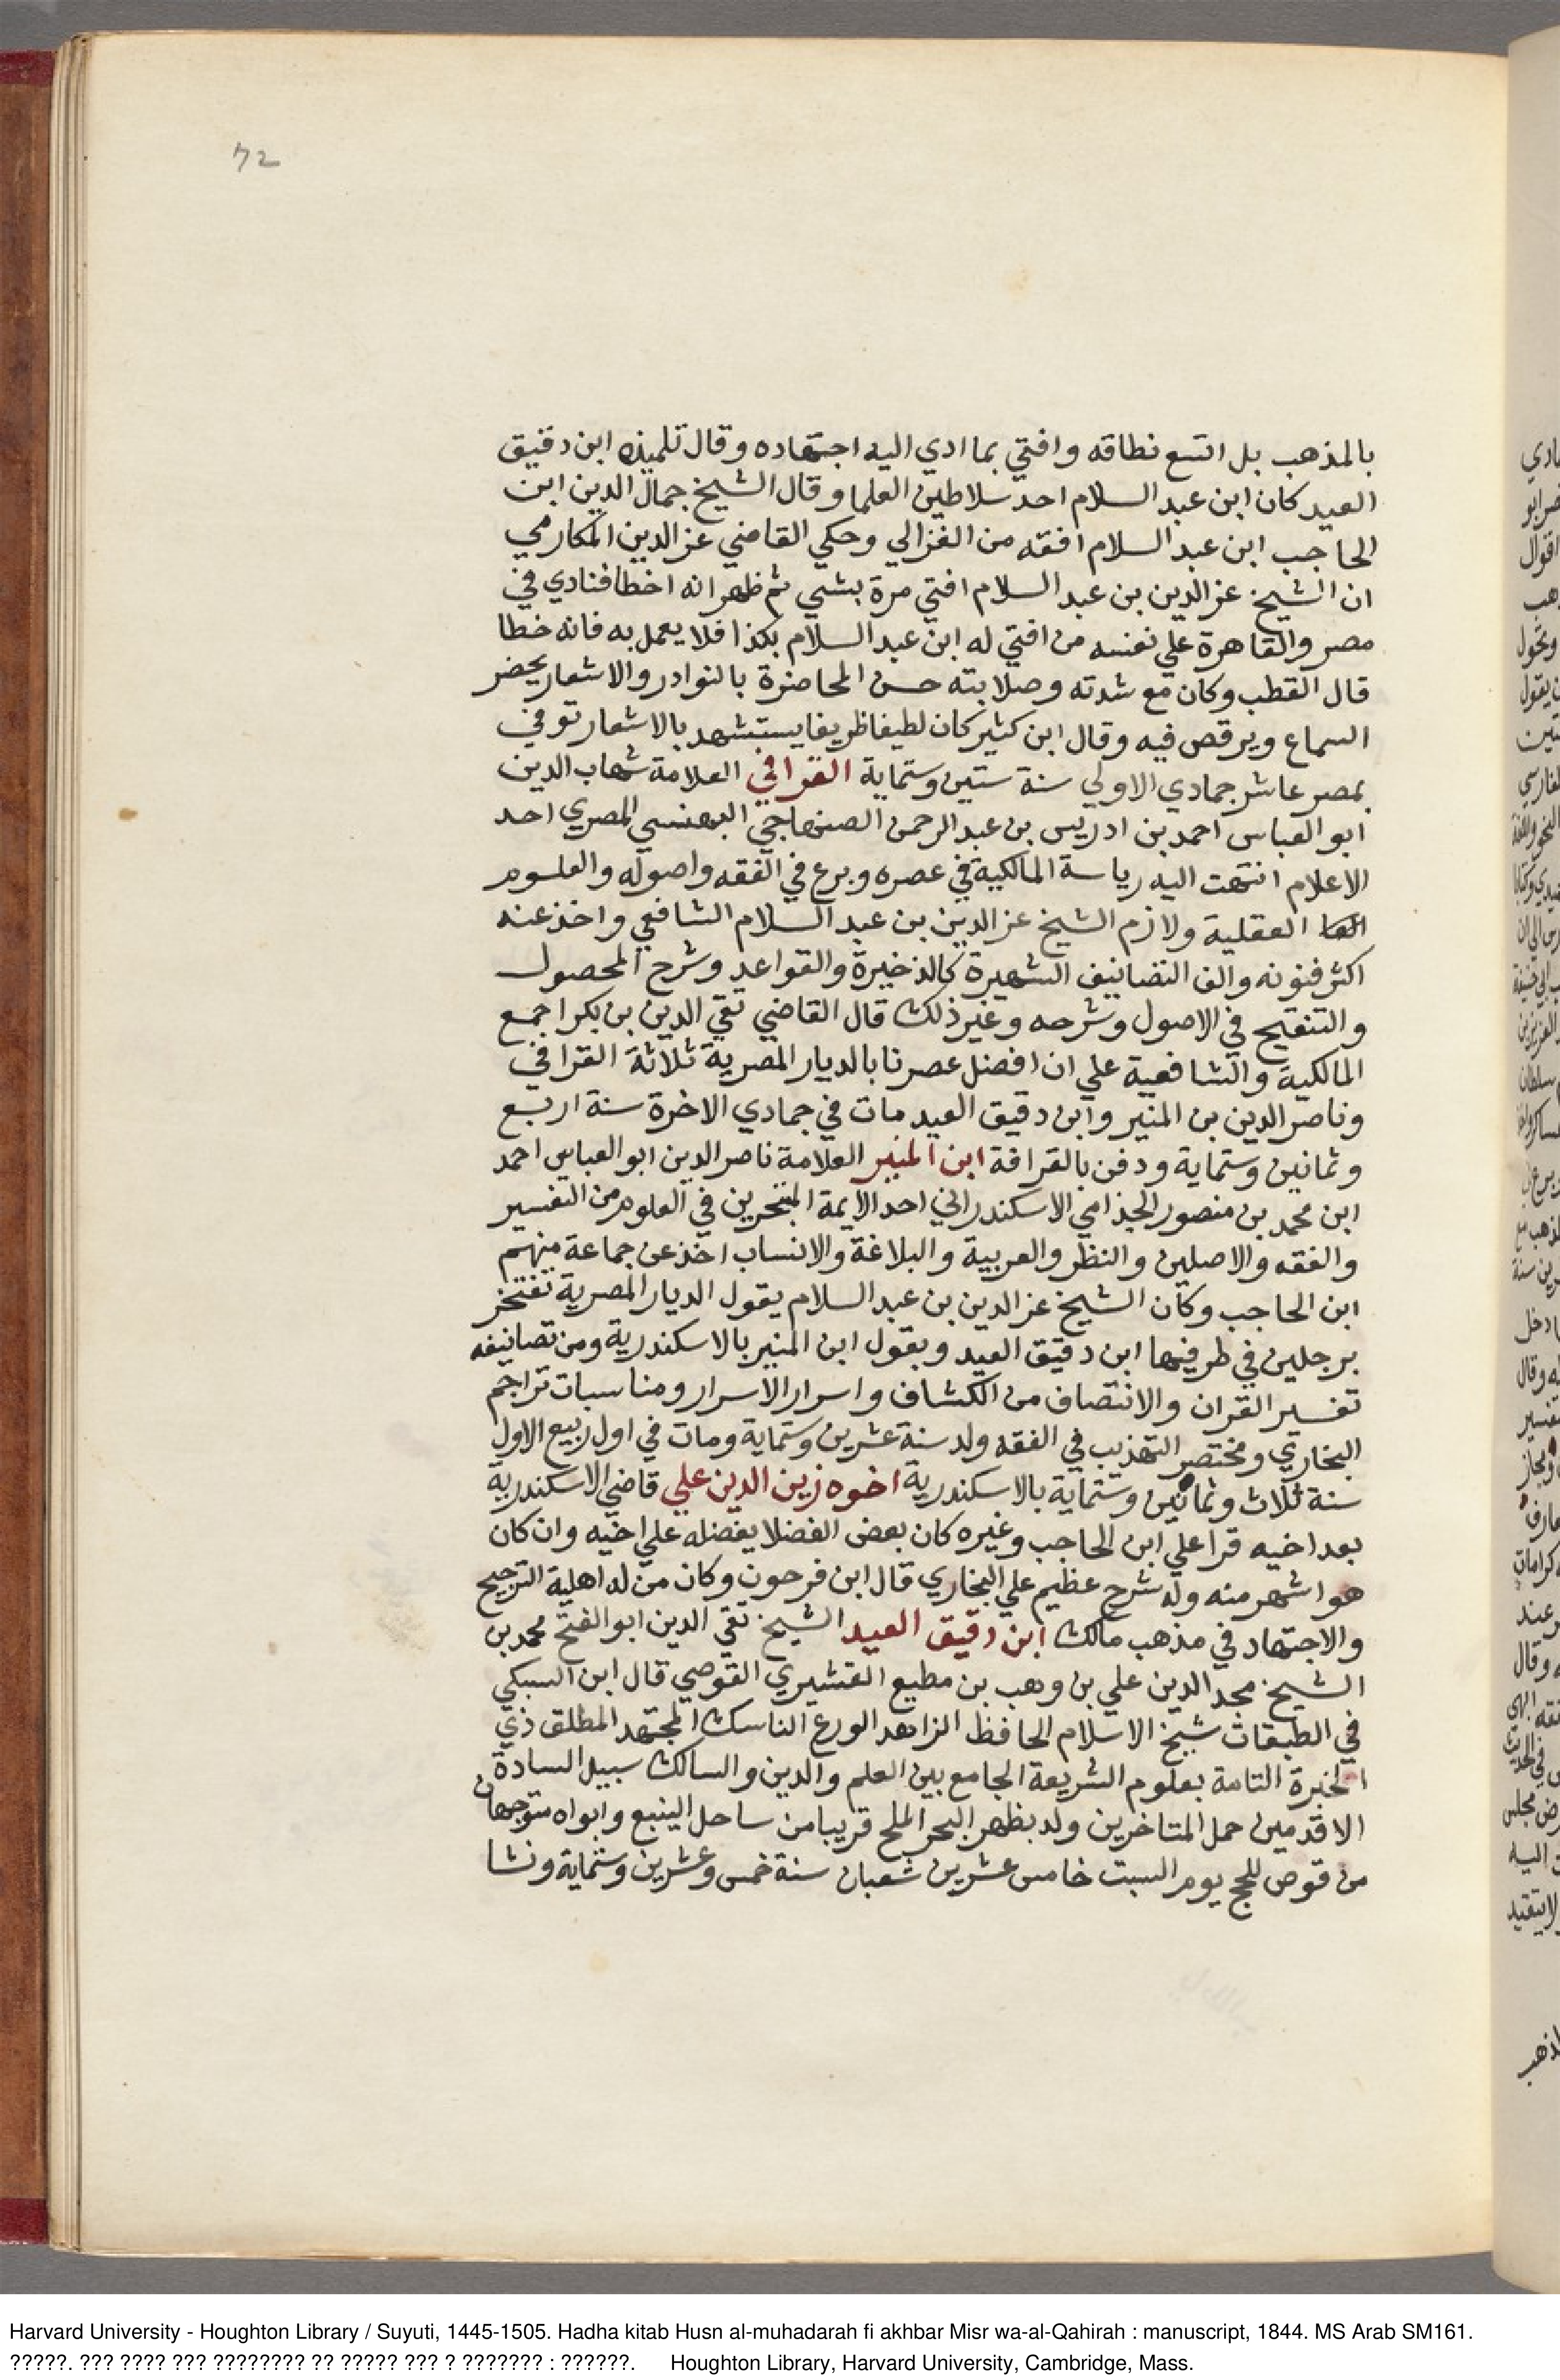 72
بالمذهب بل اتسع نطاقه وافتي بما ادي اليه اجتهاده وقال تلميذه ابن دقيق
العيد كان ابن عبد السلام احد سلاطين العلما وقال الشيخ جمال الدين ابن
الحاجب ابن عبد السلام افقه من الغزالي وحكي القاضي عز الدين الهكارمي
ان الشيخ عز الدين بن عبد السلام افتي مرة بشي ثم ظهر انه اخطا فنادي في
مصر والقاهرة علي نفسه من افتي له ابن عبد السلام بكذا فلا يعمل به فانه خطا
قال القطب وكان مع شدته وصلابته حسن المحاضرة بالنوادر والاشعار يحضر
السماع ويرقص فيه وقال ابن كثير كان لطيفا ظريفا يستشهد بالاشعار توفي
بمصر عاشر جمادي الاولي سنة ستين وستماية القرافي العلامة شهاب الدين
ابو العباس احمد بن ادريس بن عبد الرحمن الصنهاجي البهنسي المصري احد
الاعلام انتهت اليه رياسة المالكية في عصره وبرع في الفقه واصوله والعلوم
العقلية ولازم الشيخ عز الدين بن عبد السلام الشافعي واخذ عنه
اكثر فنونه والف التصانيف الشهيرة كالذخيرة والقواعد وشرح المحصول
والتنقيح في الاصول وشرحه وغير ذلك قال القاضي تقي الدين بن بكر اجمع
المالكية والشافعية علي ان افضل عصرنا بالديار المصرية ثلاثة القرافي
وناصر الدين بن المنير وابن دقيق العيد مات في جمادي الاخرة سنة اربع
وثمانين وستماية ودفن بالقرافة ابن المنير العلامة ناصر الدين ابو العباس احمد
ابن محمد بن منصور الجذامي الاسكندراني احد الايمة المتبحرين في العلوم من التفسير
والفقه والاصلين والنظر والعربية والبلاغة والانساب اخذ عن جماعة منهم
ابن الحاجب وكان الشيخ عز الدين بن عبد السلام يقول الديار المصرية تفتخر
برجلين في طرفيها ابن دقيق العيد وبقول ابن المنير بالاسكندرية ومن تصانيفه
تفسير القران والانتصاف من الكشاف واسرار الاسرار ومناسبات تراجم
البخاري ومختصر التهذيب في الفقه ولد سنة عشرين وستماية ومات في اول ربيع الاول
سنة ثلاث وثمانين وستماية بالاسكندرية اخوه زين الدين علي قاضي الاسكندرية
بعد اخيه قرا علي ابن الحاجب وغيره كان بعض الفضلا يفضله علي اخيه وان كان
هو اشهر منه وله شرح عظيم علي البخاري قال ابن فرحون وكان من له اهلية الترجيح
والاجتهاد في مذهب مالك ابن دقيق العيد الشيخ تقي الدين ابو الفتح محمد بن
الشيخ مجد الدين علي بن وهب بن مطيع القشيري القوصي قال ابن السبكي
في الطبقات شيخ الاسلام الحافظ الزاهد الورع الناسك المجتهد المطلق ذي
الخبرة التامة بعلوم الشريعة الجامع بين العلم والدين والسالك سبيل السادة
الاقدمين حمل المتاخرين ولد بظهر البحر الملح قريبا من ساحل الينبع وابواه متوجهان
من قوص للحج يوم السبت خامس عشرين شعبان سنة خمس وعشرين وستماية ونشا
Harvard University - Houghton Library / Suyuti, 1445-1505. Hadha kitab Husn al-muhadarah fi akhbar Misr wa-al-Qahirah : manuscript, 1844. MS Arab SM161.
?????. ??? ???? ??? ???????? ?? ????? ??? ? ??????? : ??????. Houghton Library, Harvard University, Cambridge, Mass.